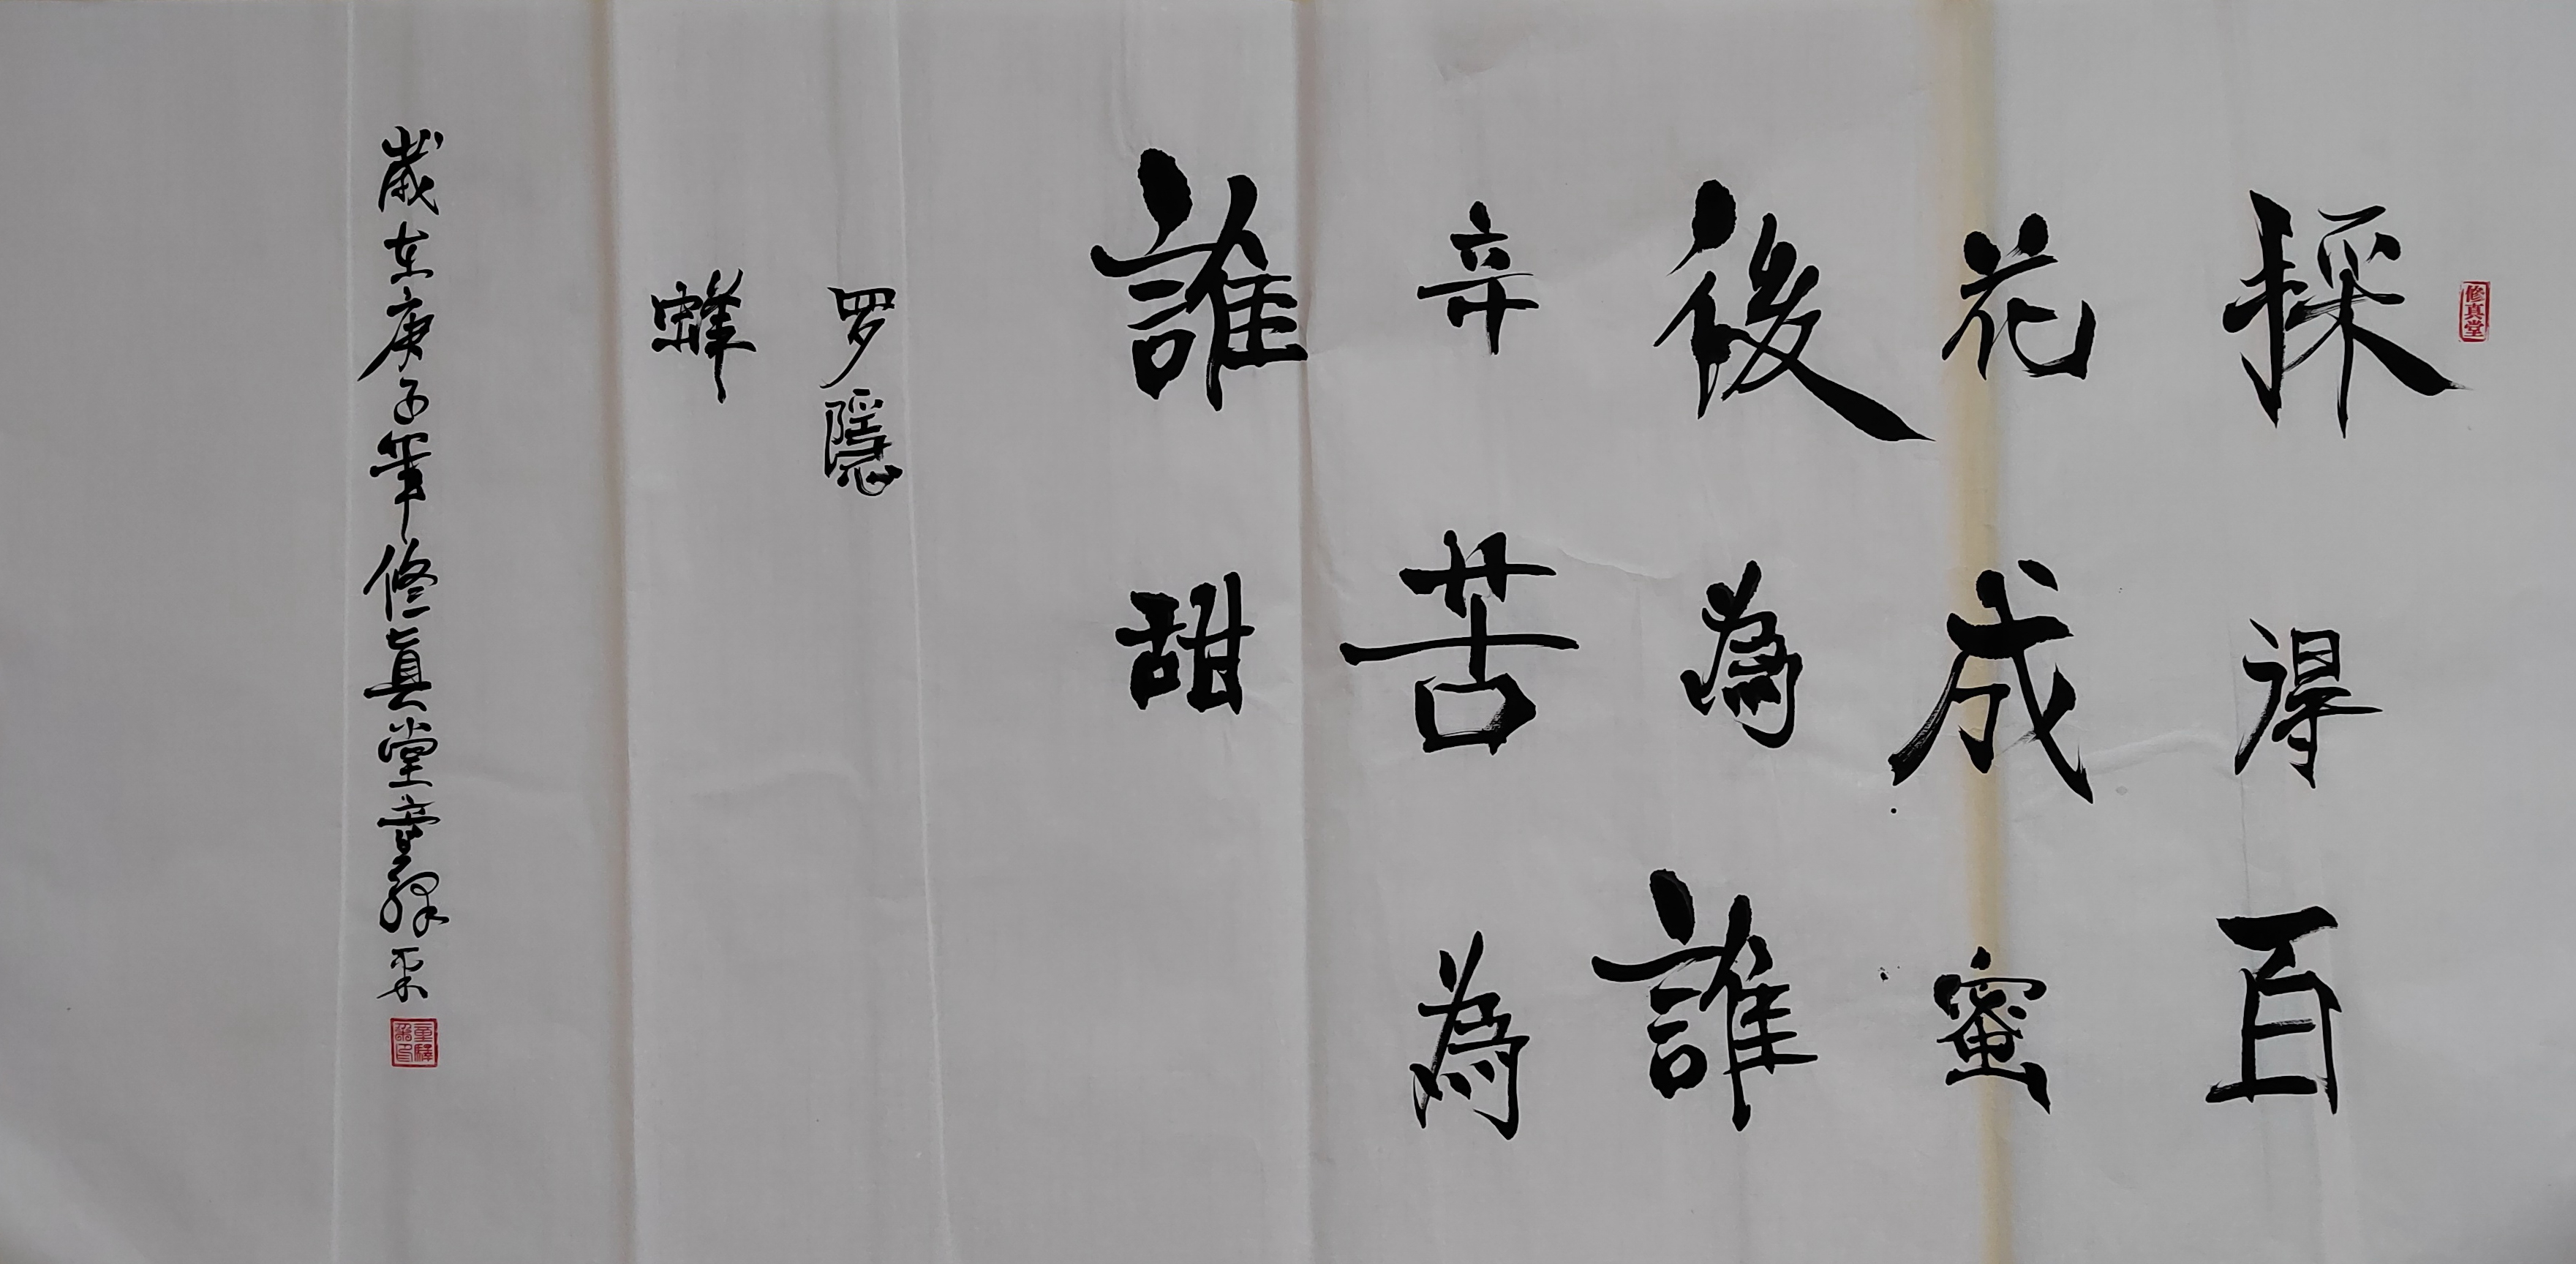 修真堂
採得百
花成蜜
後為誰
辛苦為
誰甜
罗隱
蜂
歲在庚子年修真堂童驛采